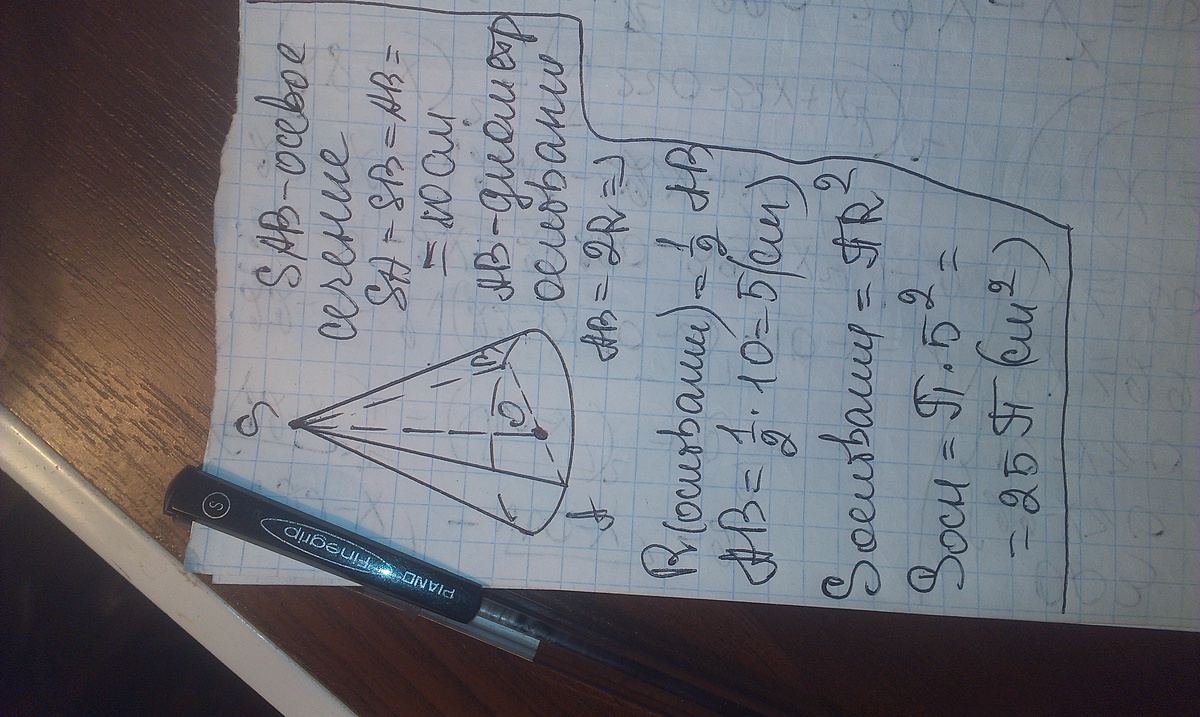 SAB-осевое
сечение
SA = SB = AB =
= 10 см
AB-диаметр
основании
AB = 2R ⇒
S
B
O
A
R(основании) = 1/2 AB
AB = 1/2 · 10 = 5 (см)
Sоснования = πR²
Sосн = π · 5² =
= 25π (см²)
PIANO Finegrip S